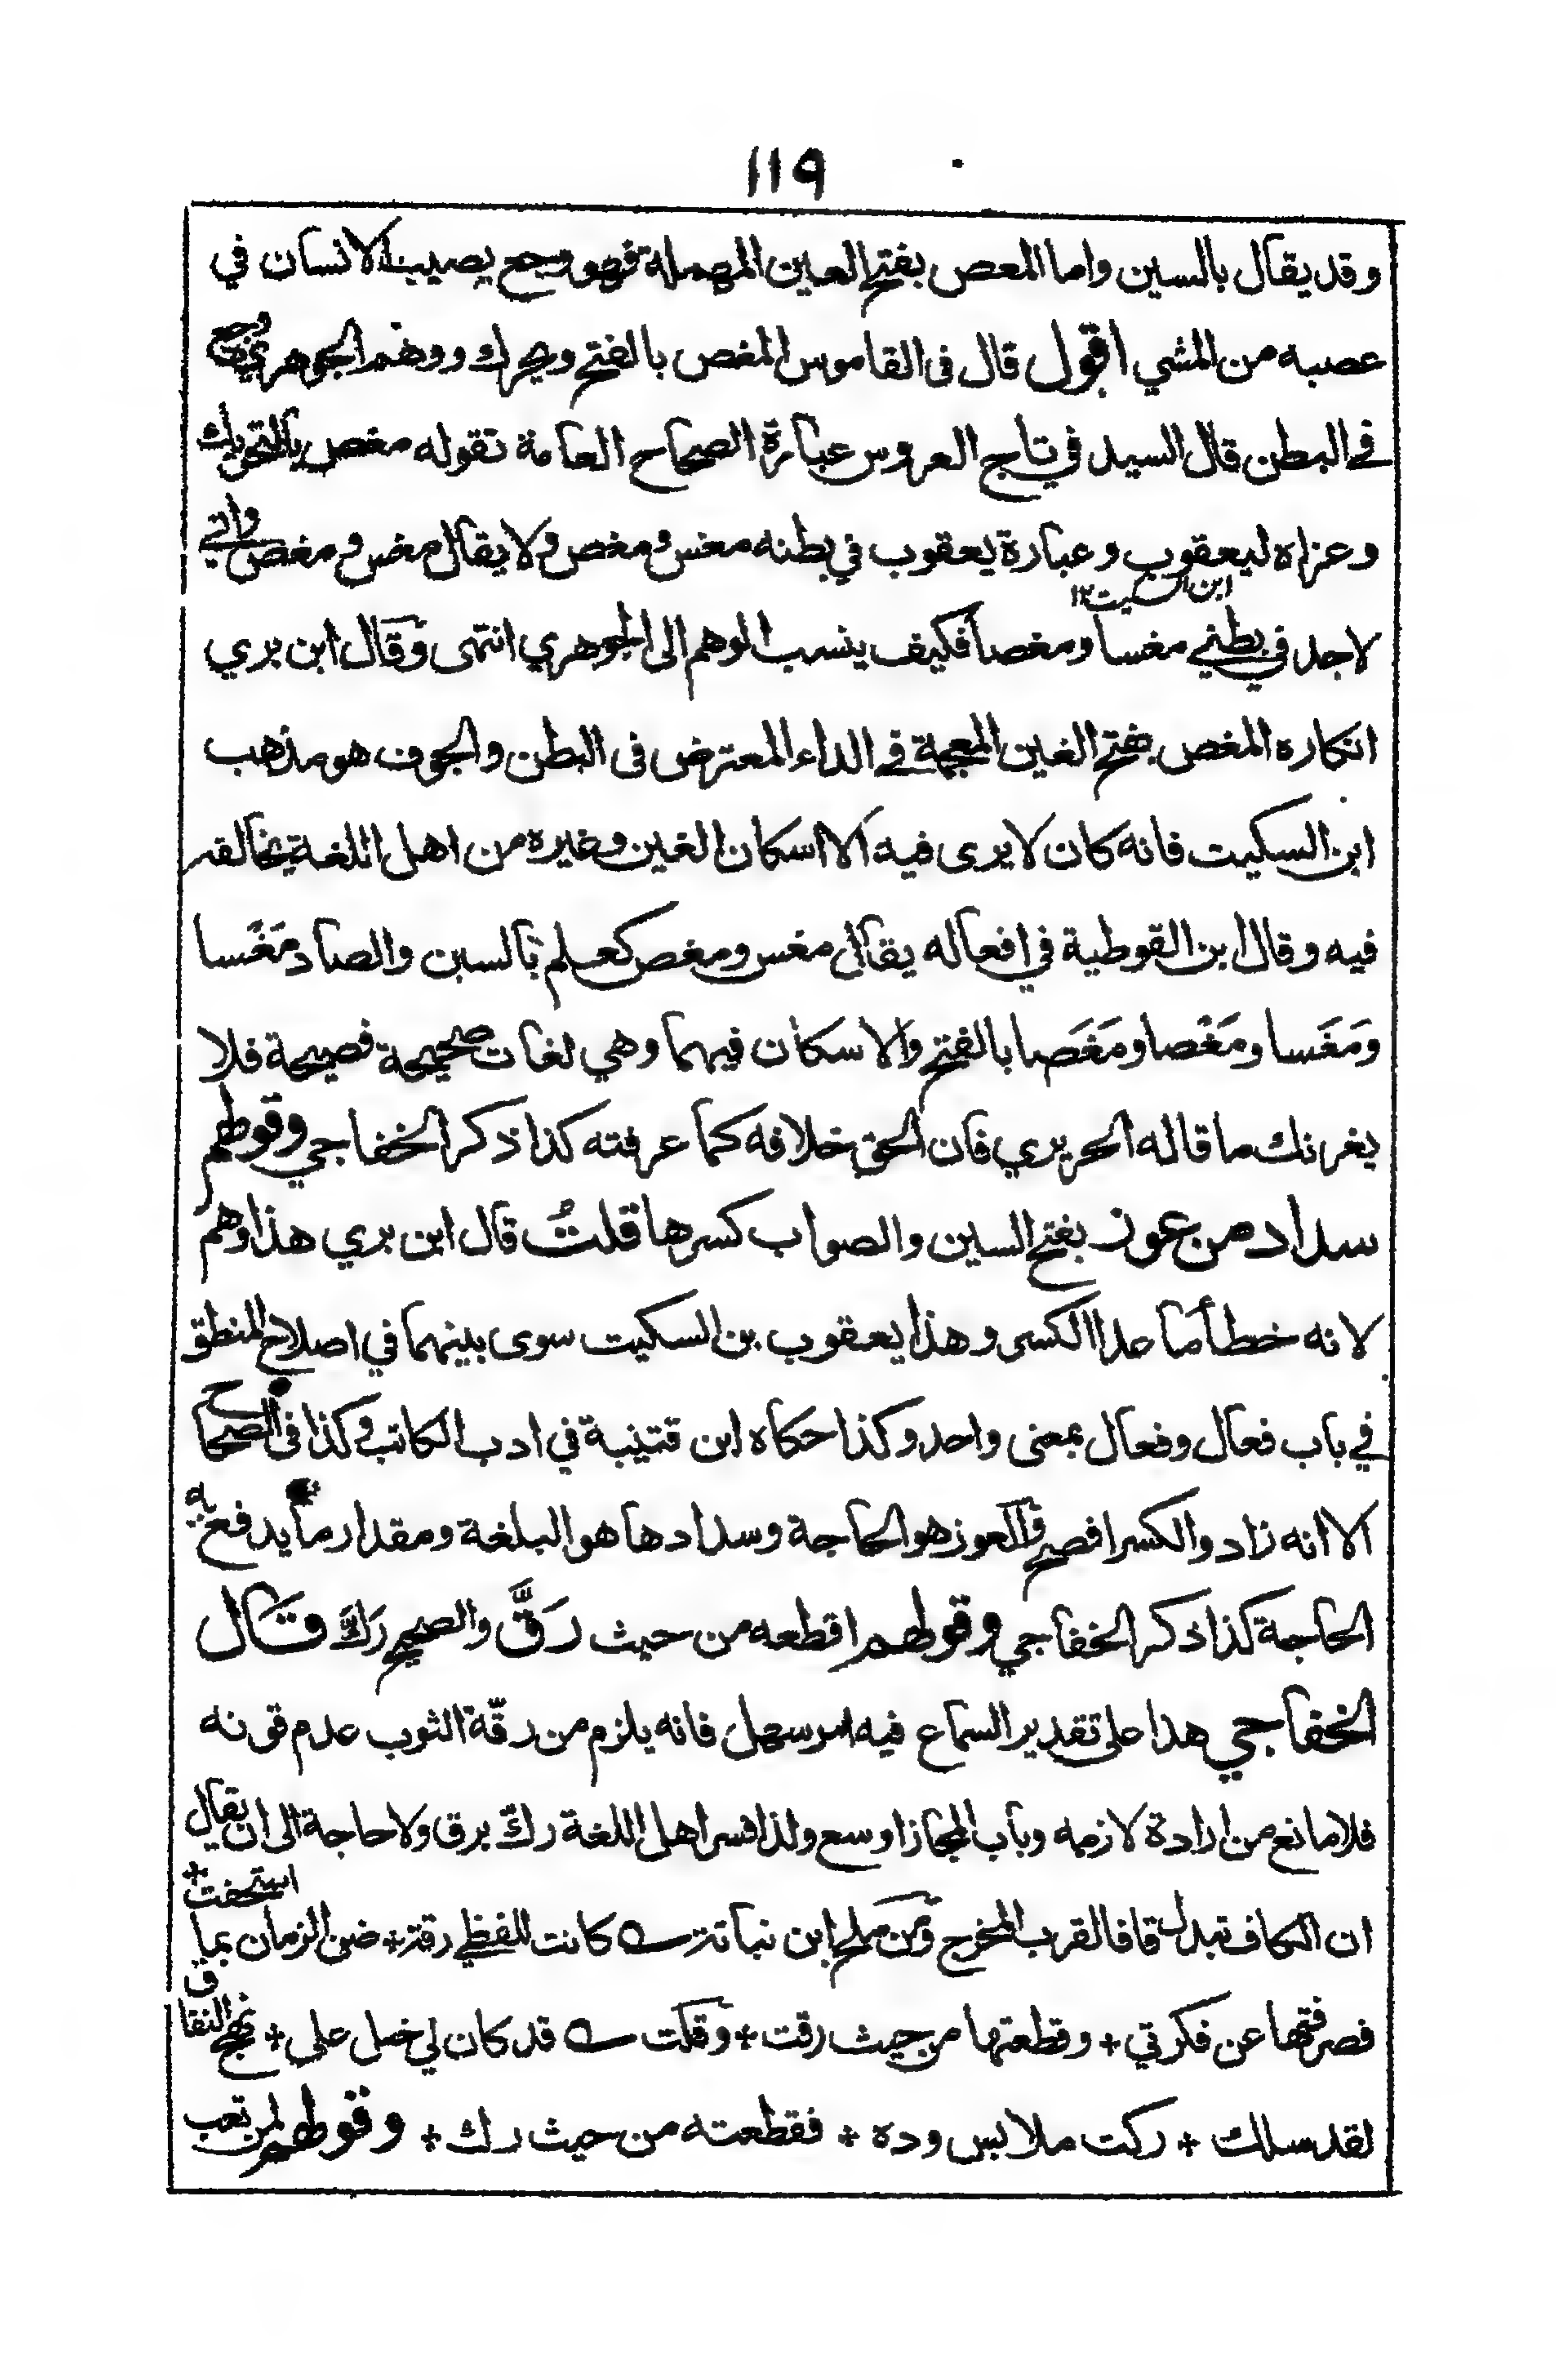 ١١٩
وقد يقال بالسين واما المعص بفتح العين المهملة فهو وجع يصيب الانسان في
عصبه من المشي اقول قال فى القاموس المغص بالفتح ويحرك ووهم الجوهري وجع
في البطن قال السيد في تاج العروس عبارة الصحاح العامة تقوله مغص بالتحريك
وعزاه ليعقوب وعبارة يعقوب في بطنه مغس ومغص ولا يقال مغس ومغص واني
ابن السكيت ١٢
لاجد في بطني مغسا ومغصا فكيف ينسب الوهم الى الجوهري انتهى وقال ابن بري
انكاره المغص بفتح الغين المعجمة في الداء المعترض فى البطن والجوف هو مذهب
ابن السكيت فانه كان لا يرى فيه الا اسكان الغين وغيره من اهل اللغة يخالفه
فيه وقال ابن القوطية في افعاله يقال مغس ومغص كعلم بالسين والصاد مَغْسا
وَمَغَسا ومَغْصا ومَغَصا بالفتح والاسكان فيهما وهي لغات صحيحة فصيحة فلا
يغرنك ما قاله الحريري فان الحق خلافه كما عرفته كذا ذكر الخفاجي وقولهم
سداد من عوز بفتح السين والصواب كسرها قلتُ قال ابن بري هذا وهم
لانه خطأ ما عدا الكسر وهذا يعقوب بن السكيت سوى بينهما في اصلاح المنطق
في باب فعال وفعال بمعنى واحد وكذا حكاه ابن قتيبة في ادب الكاتب وكذا فى الصحاح
الا انه زاد والكسر افصح والعوز هو الحاجة وسدادها هو البلغة ومقدار ما يدفع به
الحاجة كذا ذكر الخفاجي وقولهم اقطعه من حيث رَقَّ والصحيح رَكَّ قال
الخفاجي هذا على تقدير السماع فيه امر سهل فانه يلزم من رقّة الثوب عدم قوته
فلا مانع من ارادة لازمه وباب المجاز اوسع ولذا فسر اهل اللغة ركّ برق ولا حاجة الى ان يقال
ان الكاف تبدل قافا لقرب المخرج ومن ملح ابن نباتة ؎ كانت للفظي رقة + ضن الزمان بما استحقت +
فصرفتها عن فكرتي + وقطعتها من حيث رقت + وقلت ؎ قد كان لي خل على + نهج النفاق
لقد سلك + ركت ملابس وده + فقطعته من حيث رك + وقولهم لمن تعب